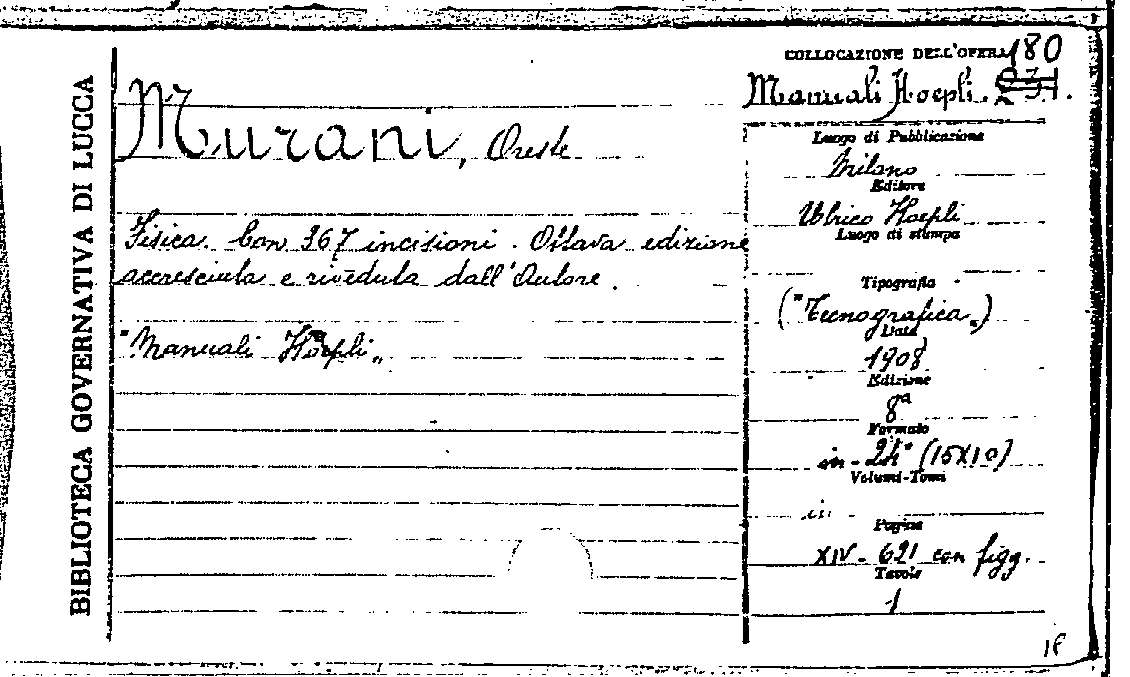 BIBLIOTECA GOVERNATIVA DI LUCCA
Murani, Oreste
Fisica. Con 367 incisioni. Ottava edizione
accresciuta e riveduta dall'Autore.
"Manuali Hoepli„
COLLOCAZIONE DELL'OPERA 180
Manuali Hoepli.
Luogo di Pubblicazione
Milano
Editore
Ulrico Hoepli
Luogo di stampa
Tipografia
("Tecnografica„)
Data
1908
Edizione
8ª
Formato
in-24° (15X10)
Volumi-Tomi
Pagine
XIV-621 con figg.
Tavole
1